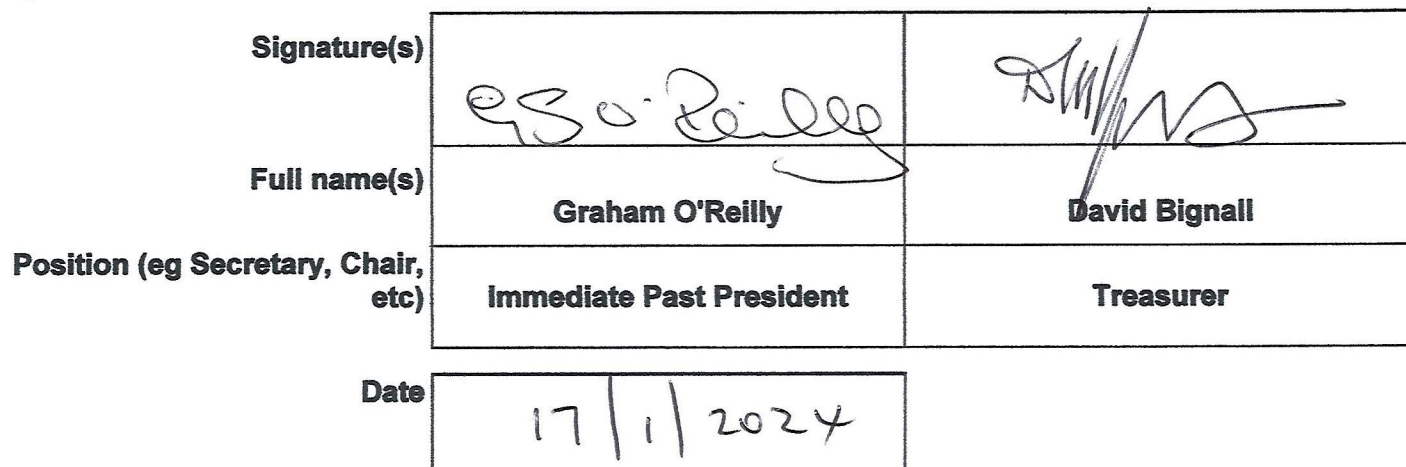 Signature(s)
GS O'Reilly
Full name(s)
Graham O'Reilly David Bignall
Position (eg Secretary, Chair,
etc) Immediate Past President Treasurer
Date 17/1/2024